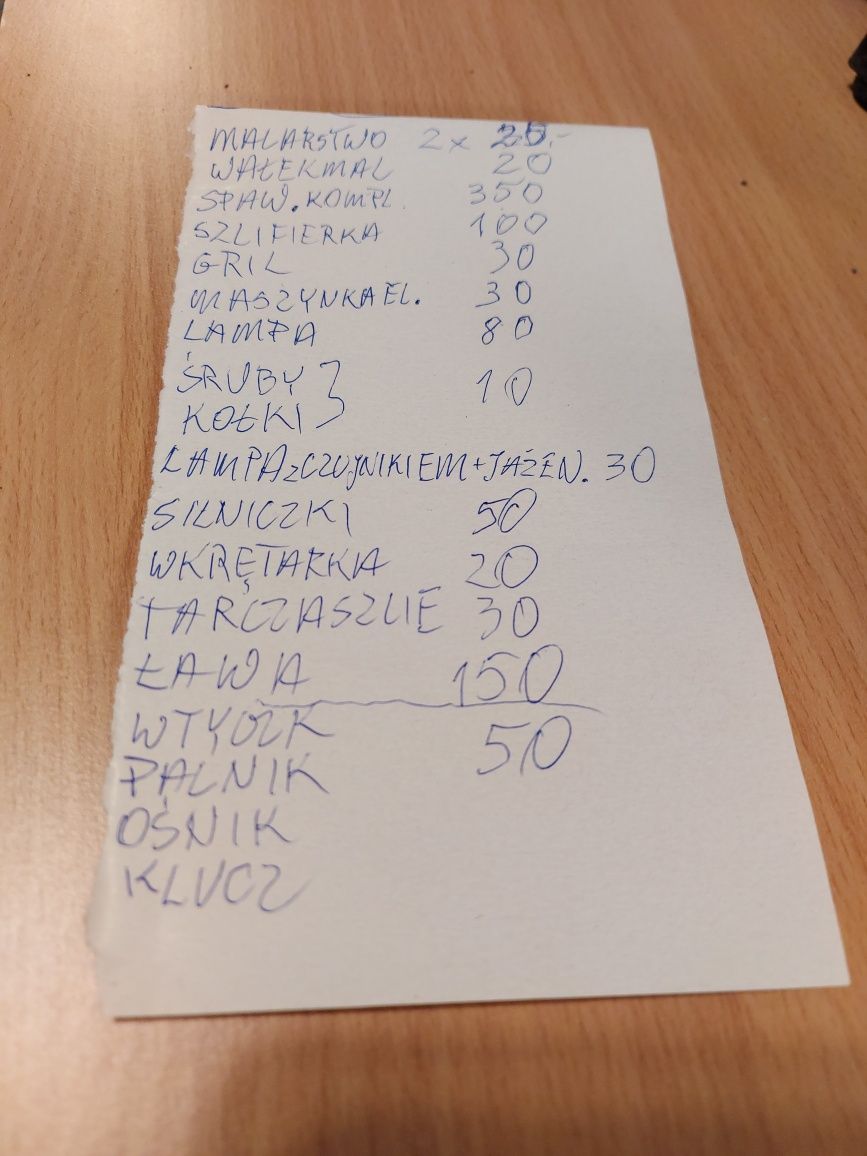 MALARSTWO 2 x 25,-
WAŁEK MAL 20
SPAW. KOMPL. 350
SZLIFIERKA 100
GRIL 30
MASZYNKA EL. 30
LAMPA 80
ŚRUBY } 10
KOŁKI
LAMPA Z CZUJNIKIEM + JAŻEN. 30
SILNICZKI 50
WKRĘTARKA 20
TARCZA SZLIF 30
ŁAWA 150
WTYCZK 50
PALNIK
OŚNIK
KLUCZ